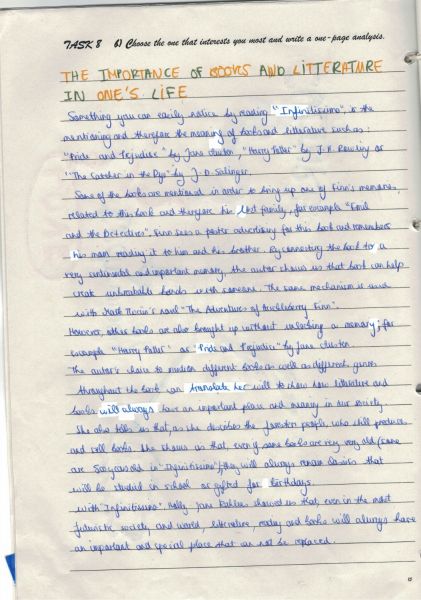 TASK 8 6) Choose the one that interests you most and write a one-page analysis.
THE IMPORTANCE OF BOOKS AND LITTERATURE
IN ONE'S LIFE
Something you can easily notice by reading "Infinitissimo", is the
mentioning and therefore the meaning of books and litterature such as:
"Pride and Prejudice" by Jane Austen, "Harry Potter" by J.K Rowling or
"The Catcher in the Rye" by J.D. Salinger.
Some of the books are mentioned in order to bring up one of Finn's memories,
related to the book and therefore his family, for example "Emil
and the Detectives". Finn sees a poster advertising for this book and remembers
his mom reading it to him and his brother. By connecting the book to a
very sentimental and important memory, the autor shows us that book can help
creat unbreakable bonds with someone. The same mechanism is used
with Mark Twain's novel "The Adventures of Huckleberry Finn".
However, other books are also brought up without unlocking a memory; for
example "Harry Potter" or "Pride and Prejudice" by Jane Austen.
The autor's choice to mention different books as well as different genres
throughout the book can translate her will to show how litterature and
books will always have an important place and meaning in our society.
She also tells us that, as she describes the people who still produces
and sell books. She shows us that, even if some books are very very old (some
are 500 years old in "Infinitissimo"), they will always remain classics that
will be studied in school or gifted for birthdays.
With "Infinitissimo", Holly Jane Rahlens showed us that, even in the most
futuristic society, and world, litterature, reading and books will always have
an important and special place that can not be replaced.